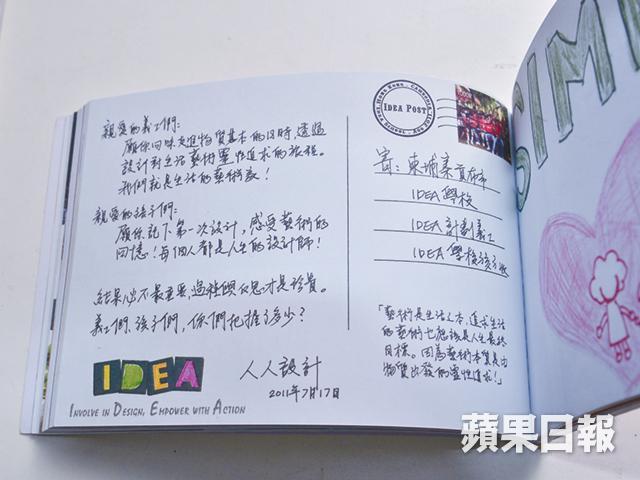 親愛的義工們:
願你回味走進物質基本的同時,透過
設計對生活藝術靈性追求的旅程。
我們就是生活的藝術家!
親愛的孩子們:
願你記下第一次設計,感受藝術的
回憶!每個人都是人生的設計師!
結果從不最重要,過程
才是珍貴。
義工們、孩子們,你們把握了多少?
人人設計
2011年7月17日
IDEA
INVOLVE IN DESIGN, EMPOWER WITH ACTION
IDEA POST
寄:柬埔寨貢布市
IDEA學校
IDEA計劃義工
IDEA學校孩子
「藝術是生活之本,追求生活
的藝術也應該是人生最終
目標。因為藝術本質是由
物質出發的靈性追求!」
SIM
蘋果日報